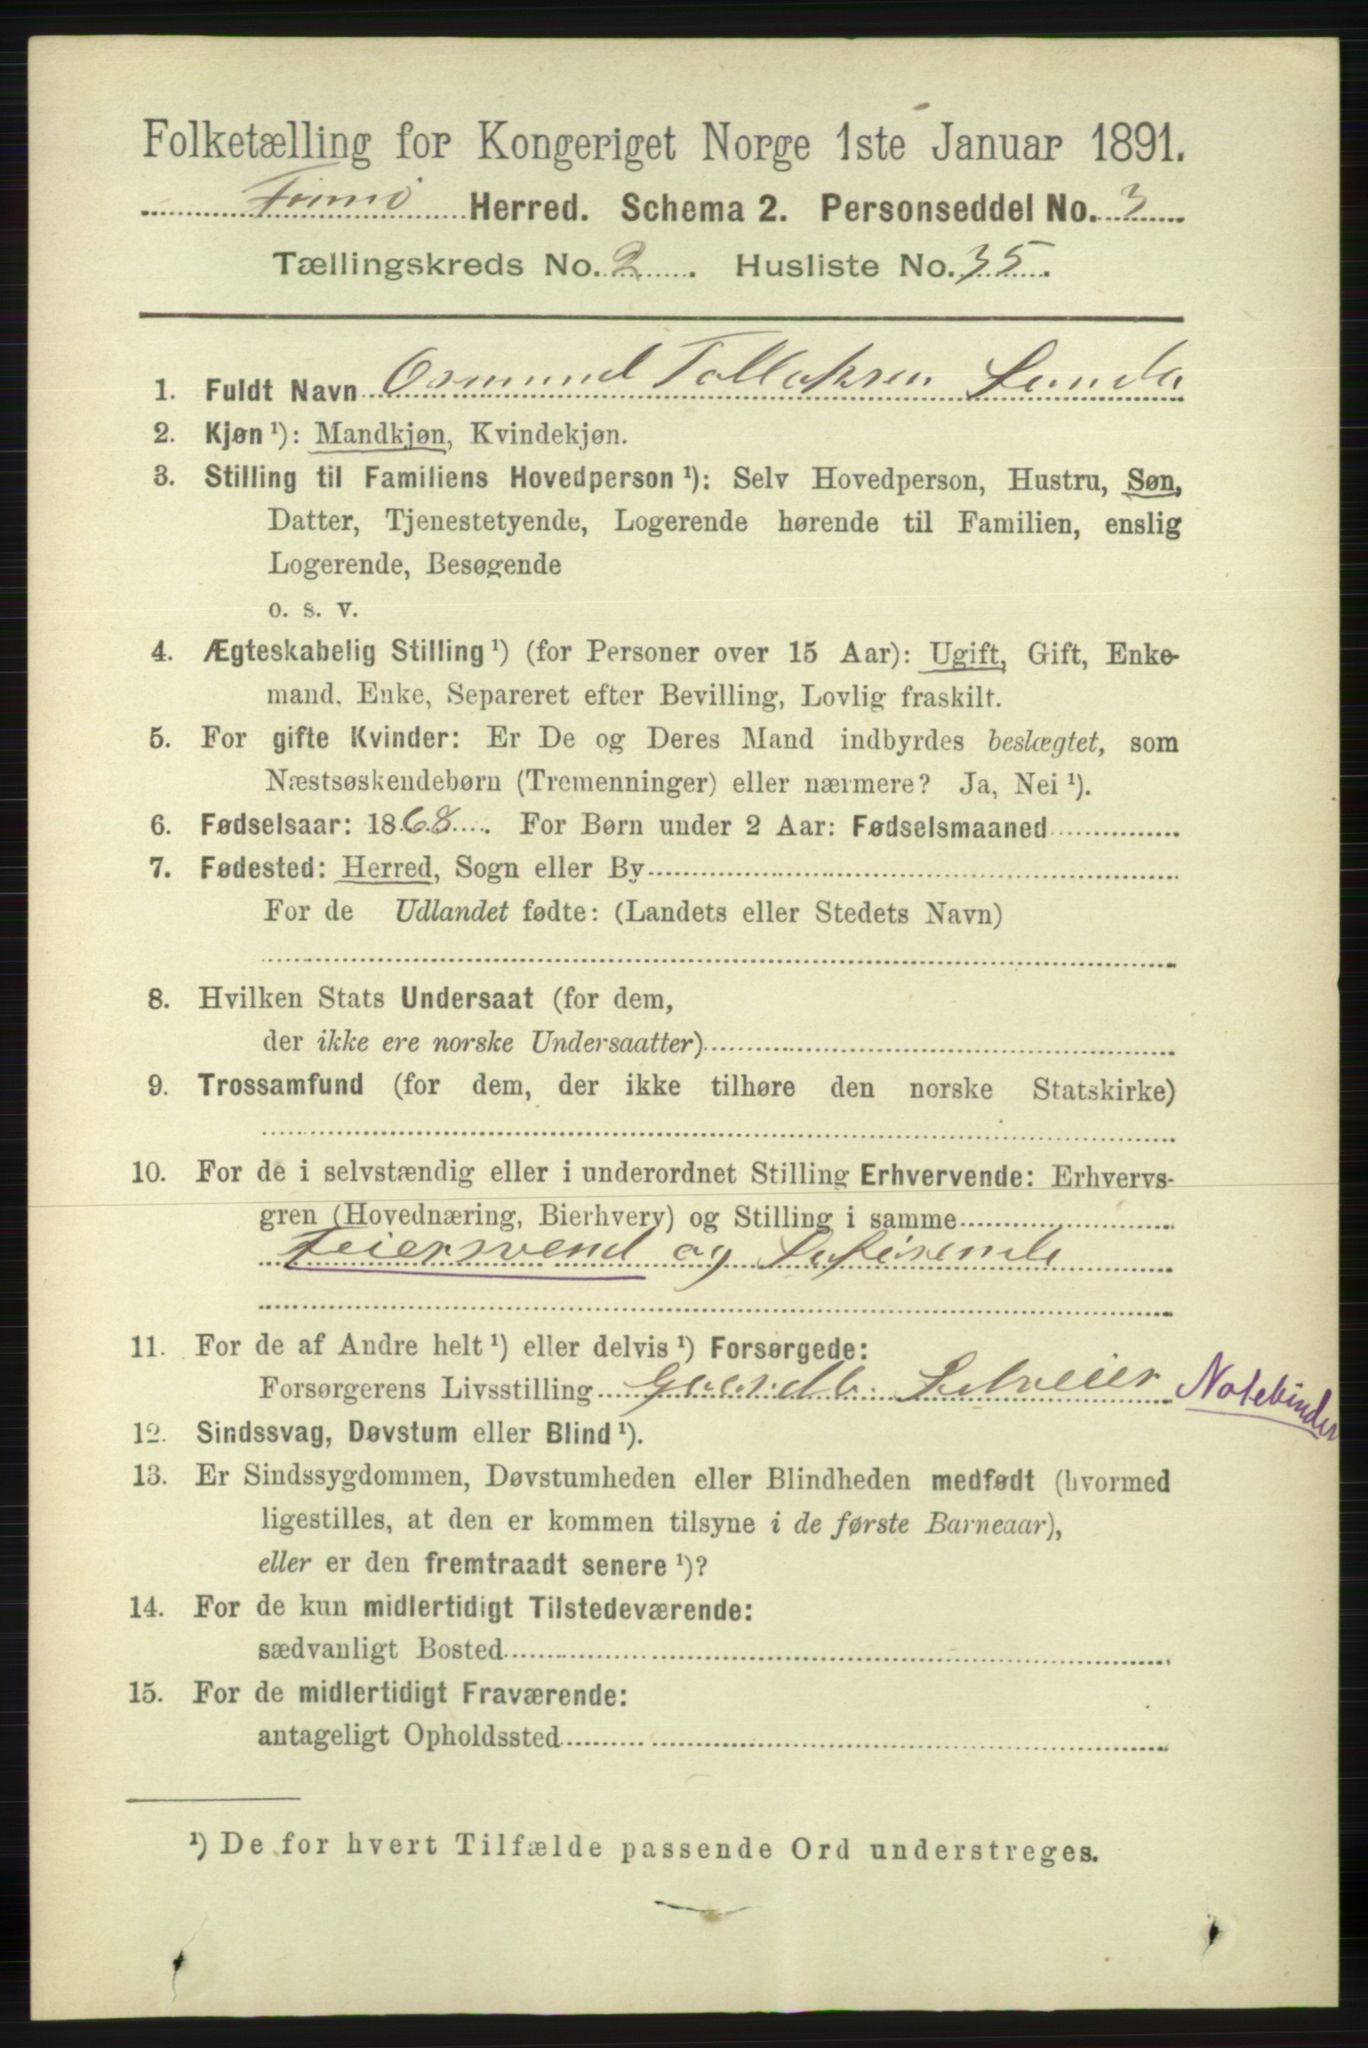 Folketælling for Kongeriget Norge 1ste Januar 1891.
Finnø Herred. Schema 2. Personseddel No. 3
Tællingskreds No. 2. Husliste No. 35.
1. Fuldt Navn Osmund Tollaksen
2. Kjøn ¹): Mandkjøn, Kvindekjøn.
3. Stilling til Familiens Hovedperson ¹): Selv Hovedperson, Hustru, Søn,
Datter, Tjenestetyende, Logerende hørende til Familien, enslig
Logerende, Besøgende
o. s. v.
4. Ægteskabelig Stilling ¹) (for Personer over 15 Aar): Ugift, Gift, Enke-
mand, Enke, Separeret efter Bevilling, Lovlig fraskilt.
5. For gifte Kvinder: Er De og Deres Mand indbyrdes beslægtet, som
Næstsøskendebørn (Tremenninger) eller nærmere? Ja, Nei ¹).
6. Fødselsaar: 1868. For Børn under 2 Aar: Fødselsmaaned
7. Fødested: Herred, Sogn eller By
For de Udlandet fødte: (Landets eller Stedets Navn)
8. Hvilken Stats Undersaat (for dem,
der ikke ere norske Undersaatter)
9. Trossamfund (for dem, der ikke tilhøre den norske Statskirke)
10. For de i selvstændig eller i underordnet Stilling Erhvervende: Erhvervs-
gren (Hovednæring, Bierhverv) og Stilling i samme
og
11. For de af Andre helt ¹) eller delvis ¹) Forsørgede:
Forsørgerens Livsstilling Selveier Notebinder
12. Sindssvag, Døvstum eller Blind ¹).
13. Er Sindssygdommen, Døvstumheden eller Blindheden medfødt (hvormed
ligestilles, at den er kommen tilsyne i de første Barneaar),
eller er den fremtraadt senere ¹)?
14. For de kun midlertidigt Tilstedeværende:
sædvanligt Bosted
15. For de midlertidigt Fraværende:
antageligt Opholdssted
¹) De for hvert Tilfælde passende Ord understreges.